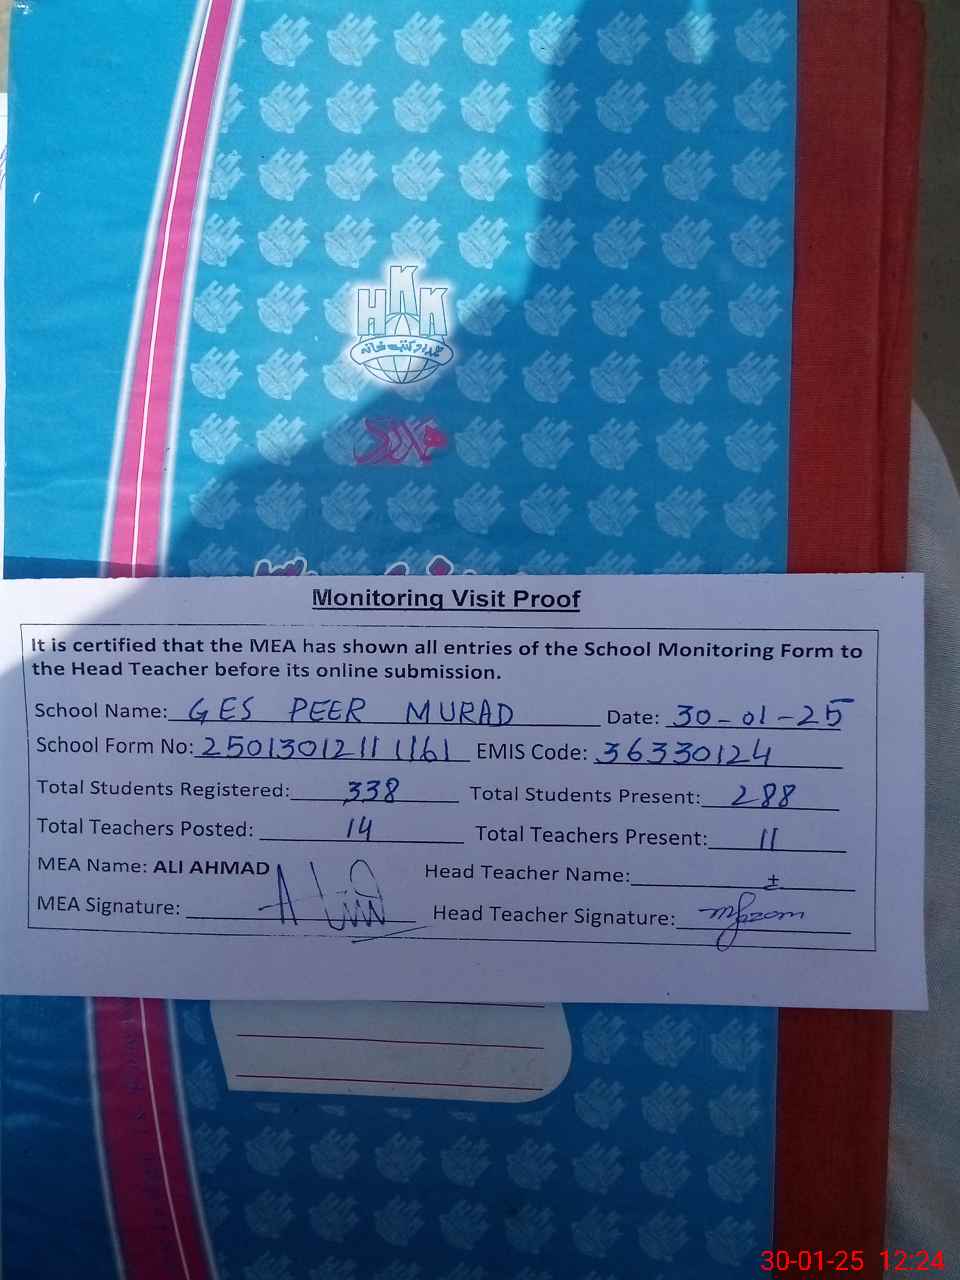 HKK
ہمدرد کتب خانہ
ہمدرد
Monitoring Visit Proof
It is certified that the MEA has shown all entries of the School Monitoring Form to
the Head Teacher before its online submission.
School Name: GES PEER MURAD Date: 30-01-25
School Form No: 25013012111161 EMIS Code: 36330124
Total Students Registered: 338 Total Students Present: 288
Total Teachers Posted: 14 Total Teachers Present: 11
MEA Name: ALI AHMAD Head Teacher Name: ±
MEA Signature: Head Teacher Signature:
30-01-25 12:24